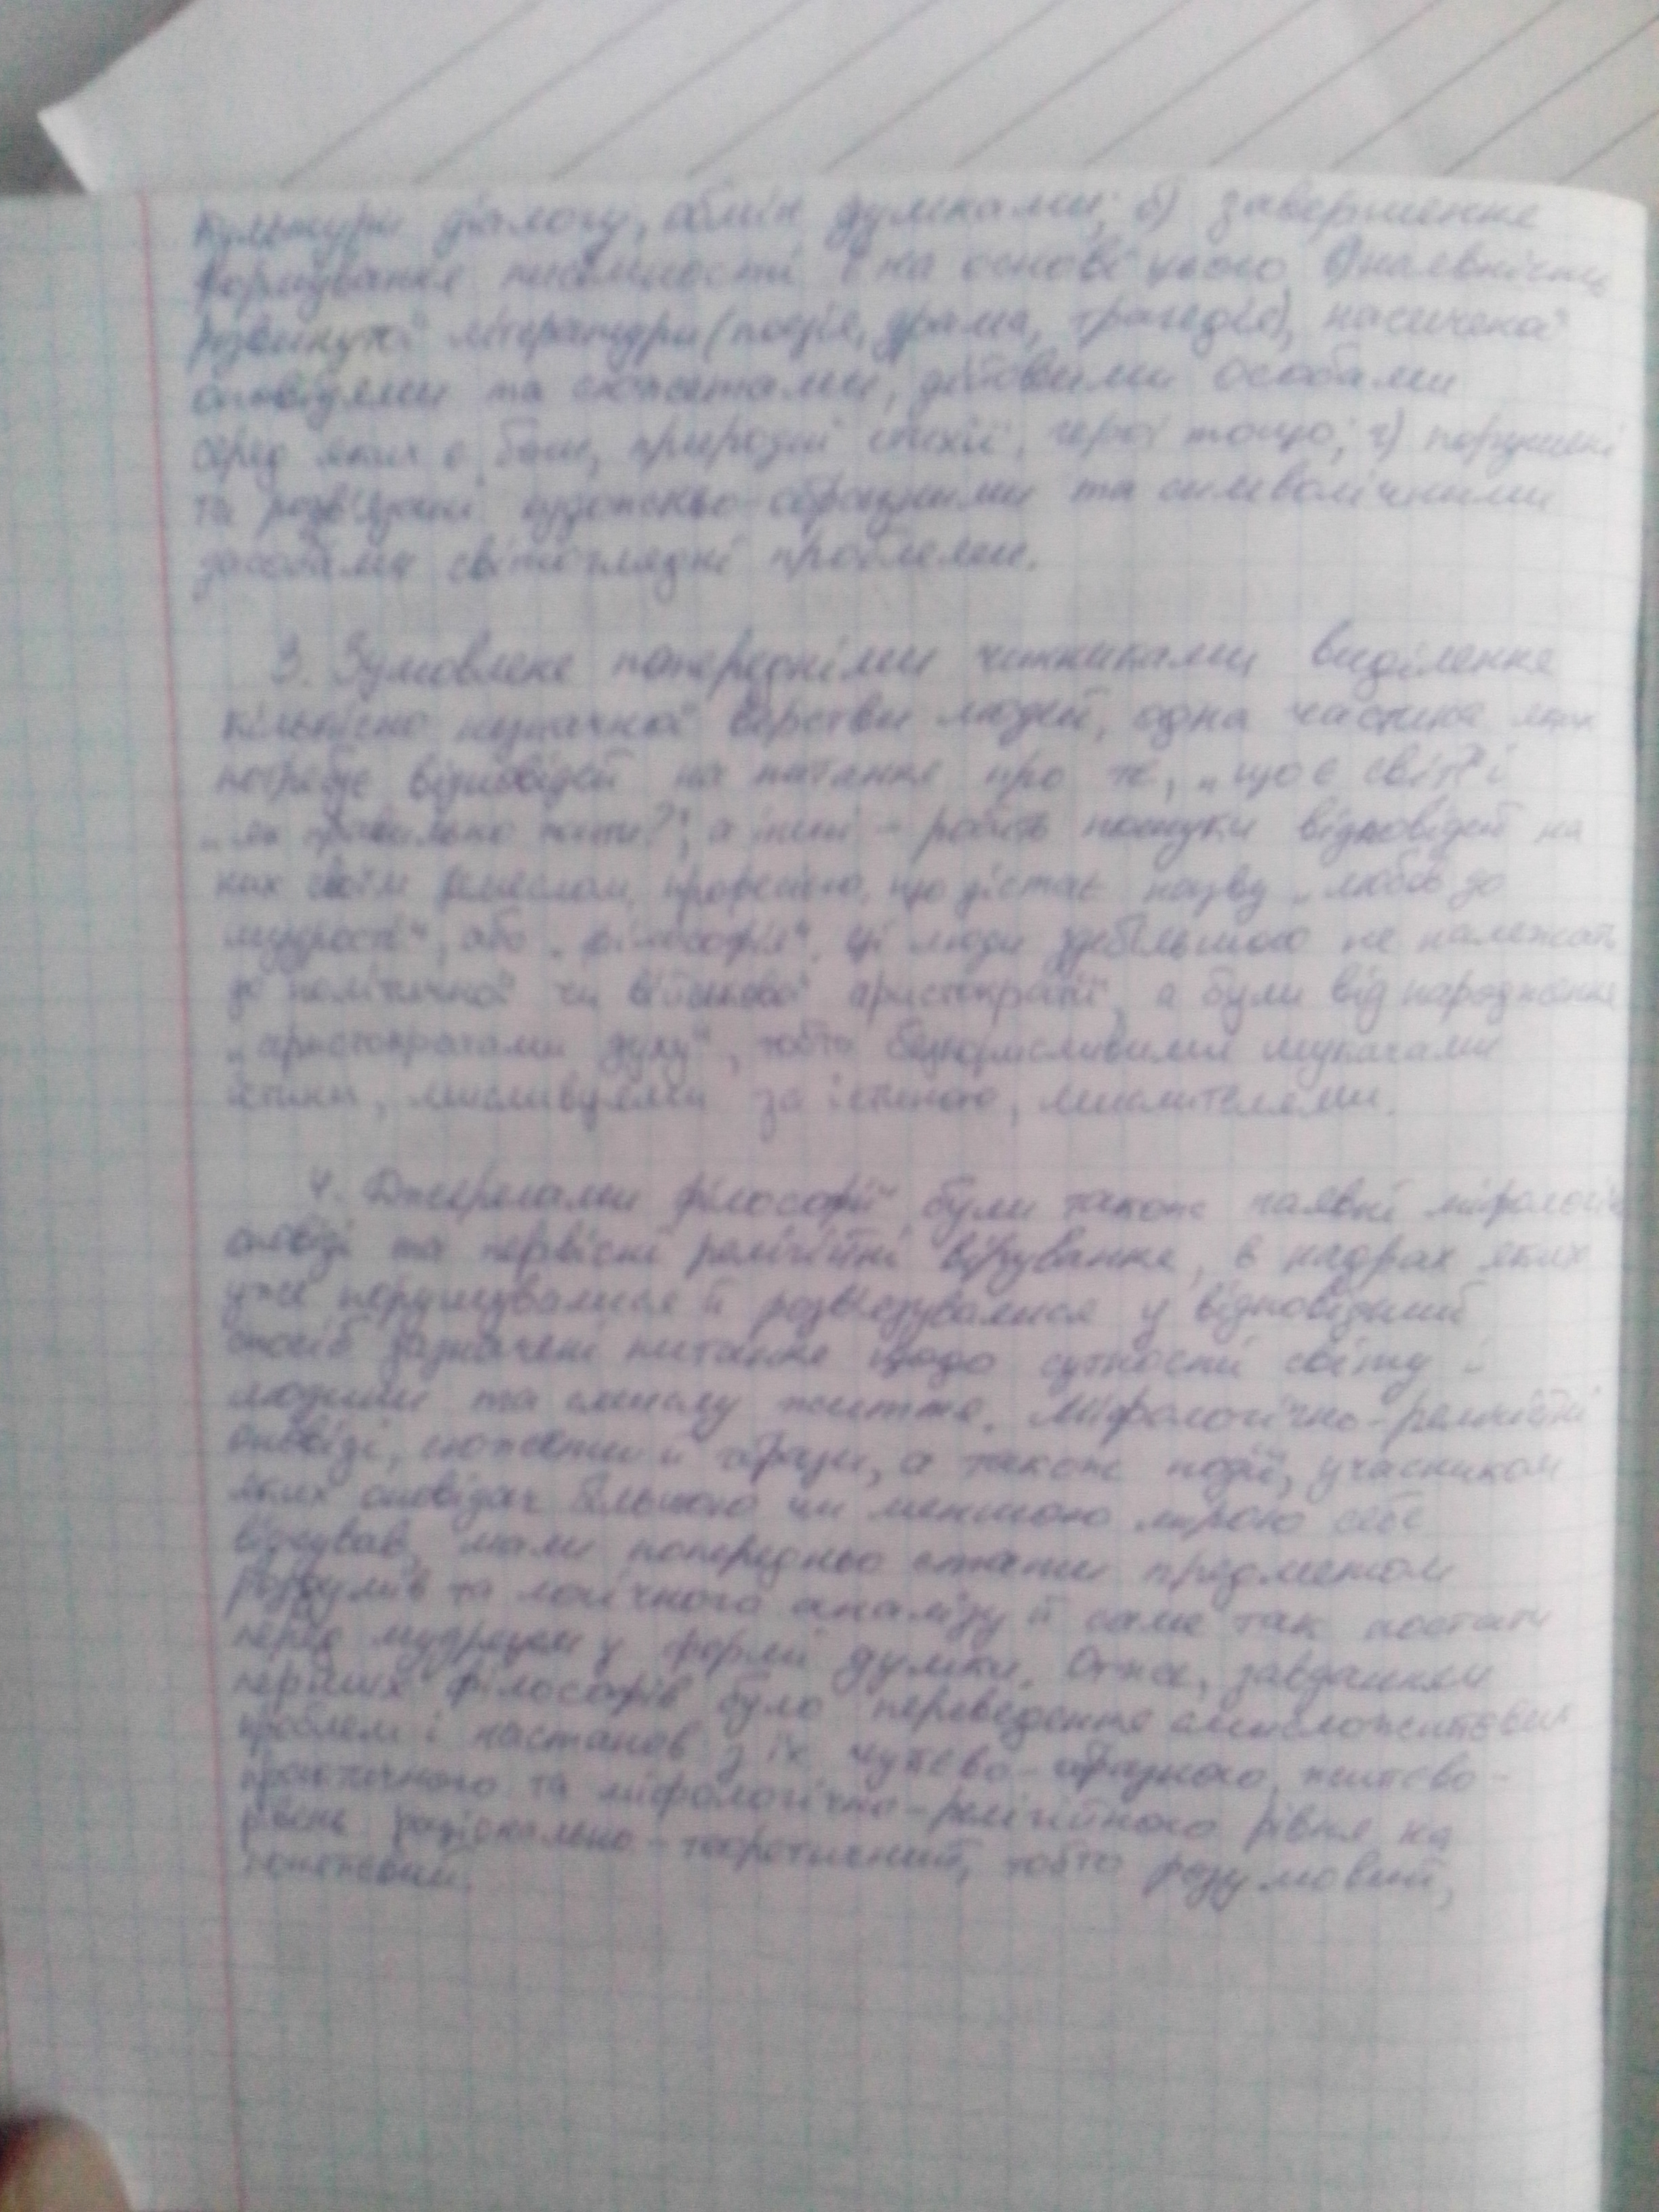 культури діалогу, обмін думками; б) завершення
формування писемності і на основі цього в) наявність
розвинутої літератури (поезія, драма, трагедія), насиченої
оповідями та сюжетами, дійовими особами
серед яких є боги, природні стихії, герої тощо; г) порушені
та розв'язані художньо-образними та символічними
засобами світоглядні проблеми.
3. Зумовлене попередніми чинниками виділення
кількісно незначної верстви людей, одна частина яких
потребує відповідей на питання про те, „що є світ?" і
„як правильно жити?", а інші - робить пошуки відповідей на
них своїм ремеслом, професією, що дістає назву „любов до
мудрості", або „філософія". Ці люди здебільшого не належать
до політичної чи військової аристократії, а були від народження
„аристократами духу", тобто безкорисливими шукачами
істини, мисливцями за істиною, мислителями.
4. Джерелами філософії були також наявні міфологічні
оповіді та первісні релігійні вірування, в надрах яких
уже порушувалися й розв'язувалися у відповідний
спосіб зазначені питання щодо сутності світу і
людини та смислу життя. Міфологічно-релігійні
оповіді, сюжети й образи, а також події, учасником
яких оповідач більшою чи меншою мірою себе
відчував, мали попередньо стати предметом
роздумів та логічного аналізу й саме так постати
перед мудрецем у формі думки. Отже, завданням
перших філософів було переведення смисложиттєвих
проблем і настанов з їх чуттєво-образного, життєво-
практичного та міфологічно-релігійного рівня на
рівень раціонально-теоретичний, тобто розумовий,